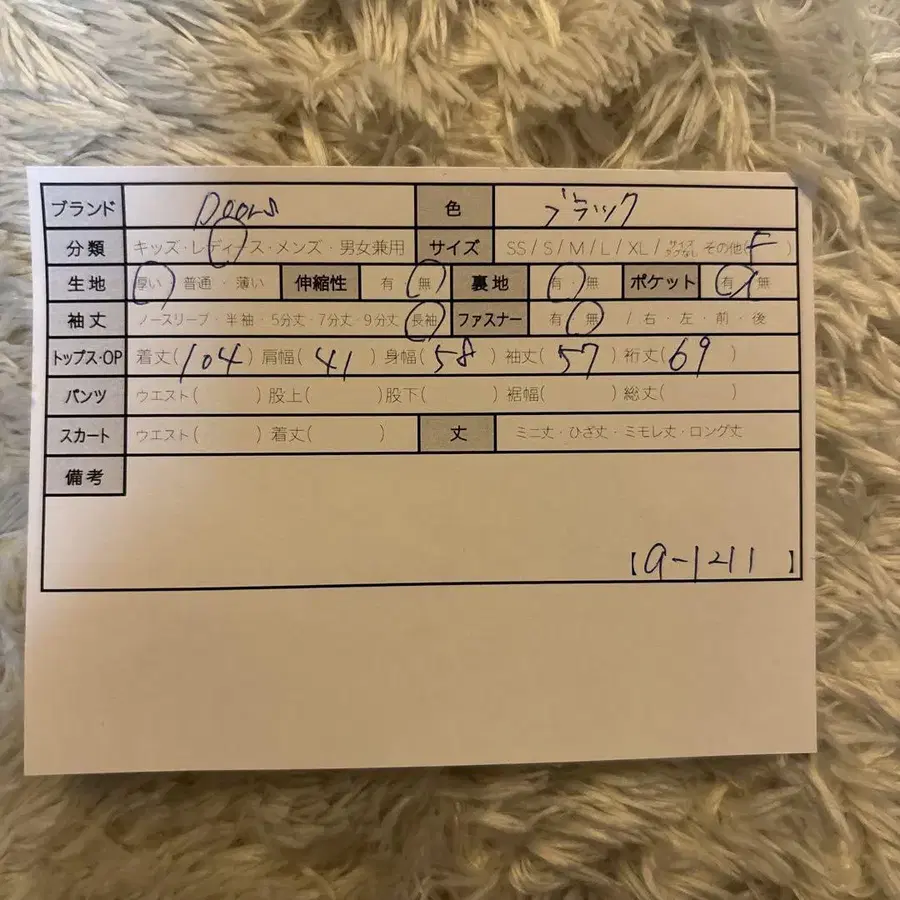 ブランド DOORS 色 ブラック
分類 キッズ・レディース・メンズ・男女兼用 サイズ SS / S / M / L / XL / サイズタグなし その他(F)
生地 厚い・普通・薄い 伸縮性 有・無 裏地 有・無 ポケット 有・無
袖丈 ノースリーブ・半袖・5分丈・7分丈・9分丈・長袖 ファスナー 有・無 / 右・左・前・後
トップス・OP 着丈(104) 肩幅(41) 身幅(58) 袖丈(57) 裄丈(69)
パンツ ウエスト( ) 股上( ) 股下( ) 裾幅( ) 総丈( )
スカート ウエスト( ) 着丈( ) 丈 ミニ丈・ひざ丈・ミモレ丈・ロング丈
備考
【a-1211】